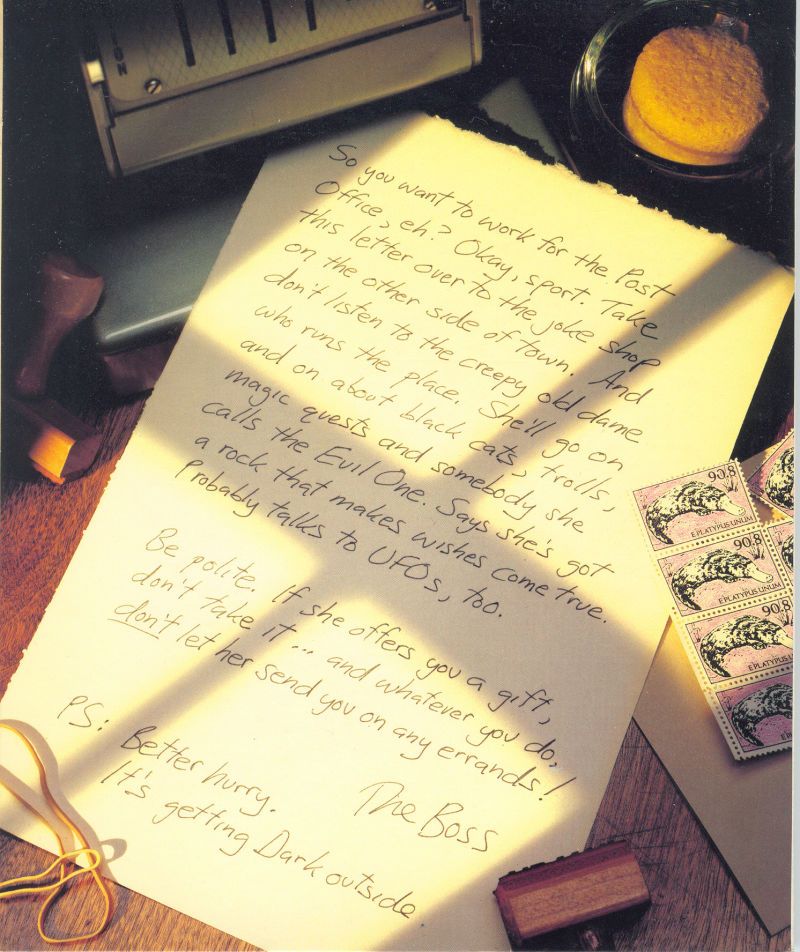 So you want to work for the Post
Office, eh? Okay, sport. Take
this letter over to the joke shop
on the other side of town. And
don't listen to the creepy old dame
who runs the place. She'll go on
and on about black cats, trolls,
magic quests and somebody she
calls the Evil One. Says she's got
a rock that makes wishes come true.
Probably talks to UFOs, too.
Be polite. If she offers you a gift,
don't take it... and whatever you do,
don't let her send you on any errands!
The Boss
PS: Better hurry.
It's getting Dark outside.
90.8
E PLATYPUS UNUM
90.8
E PLATYPUS UNUM
90.8
E PLATYPUS U